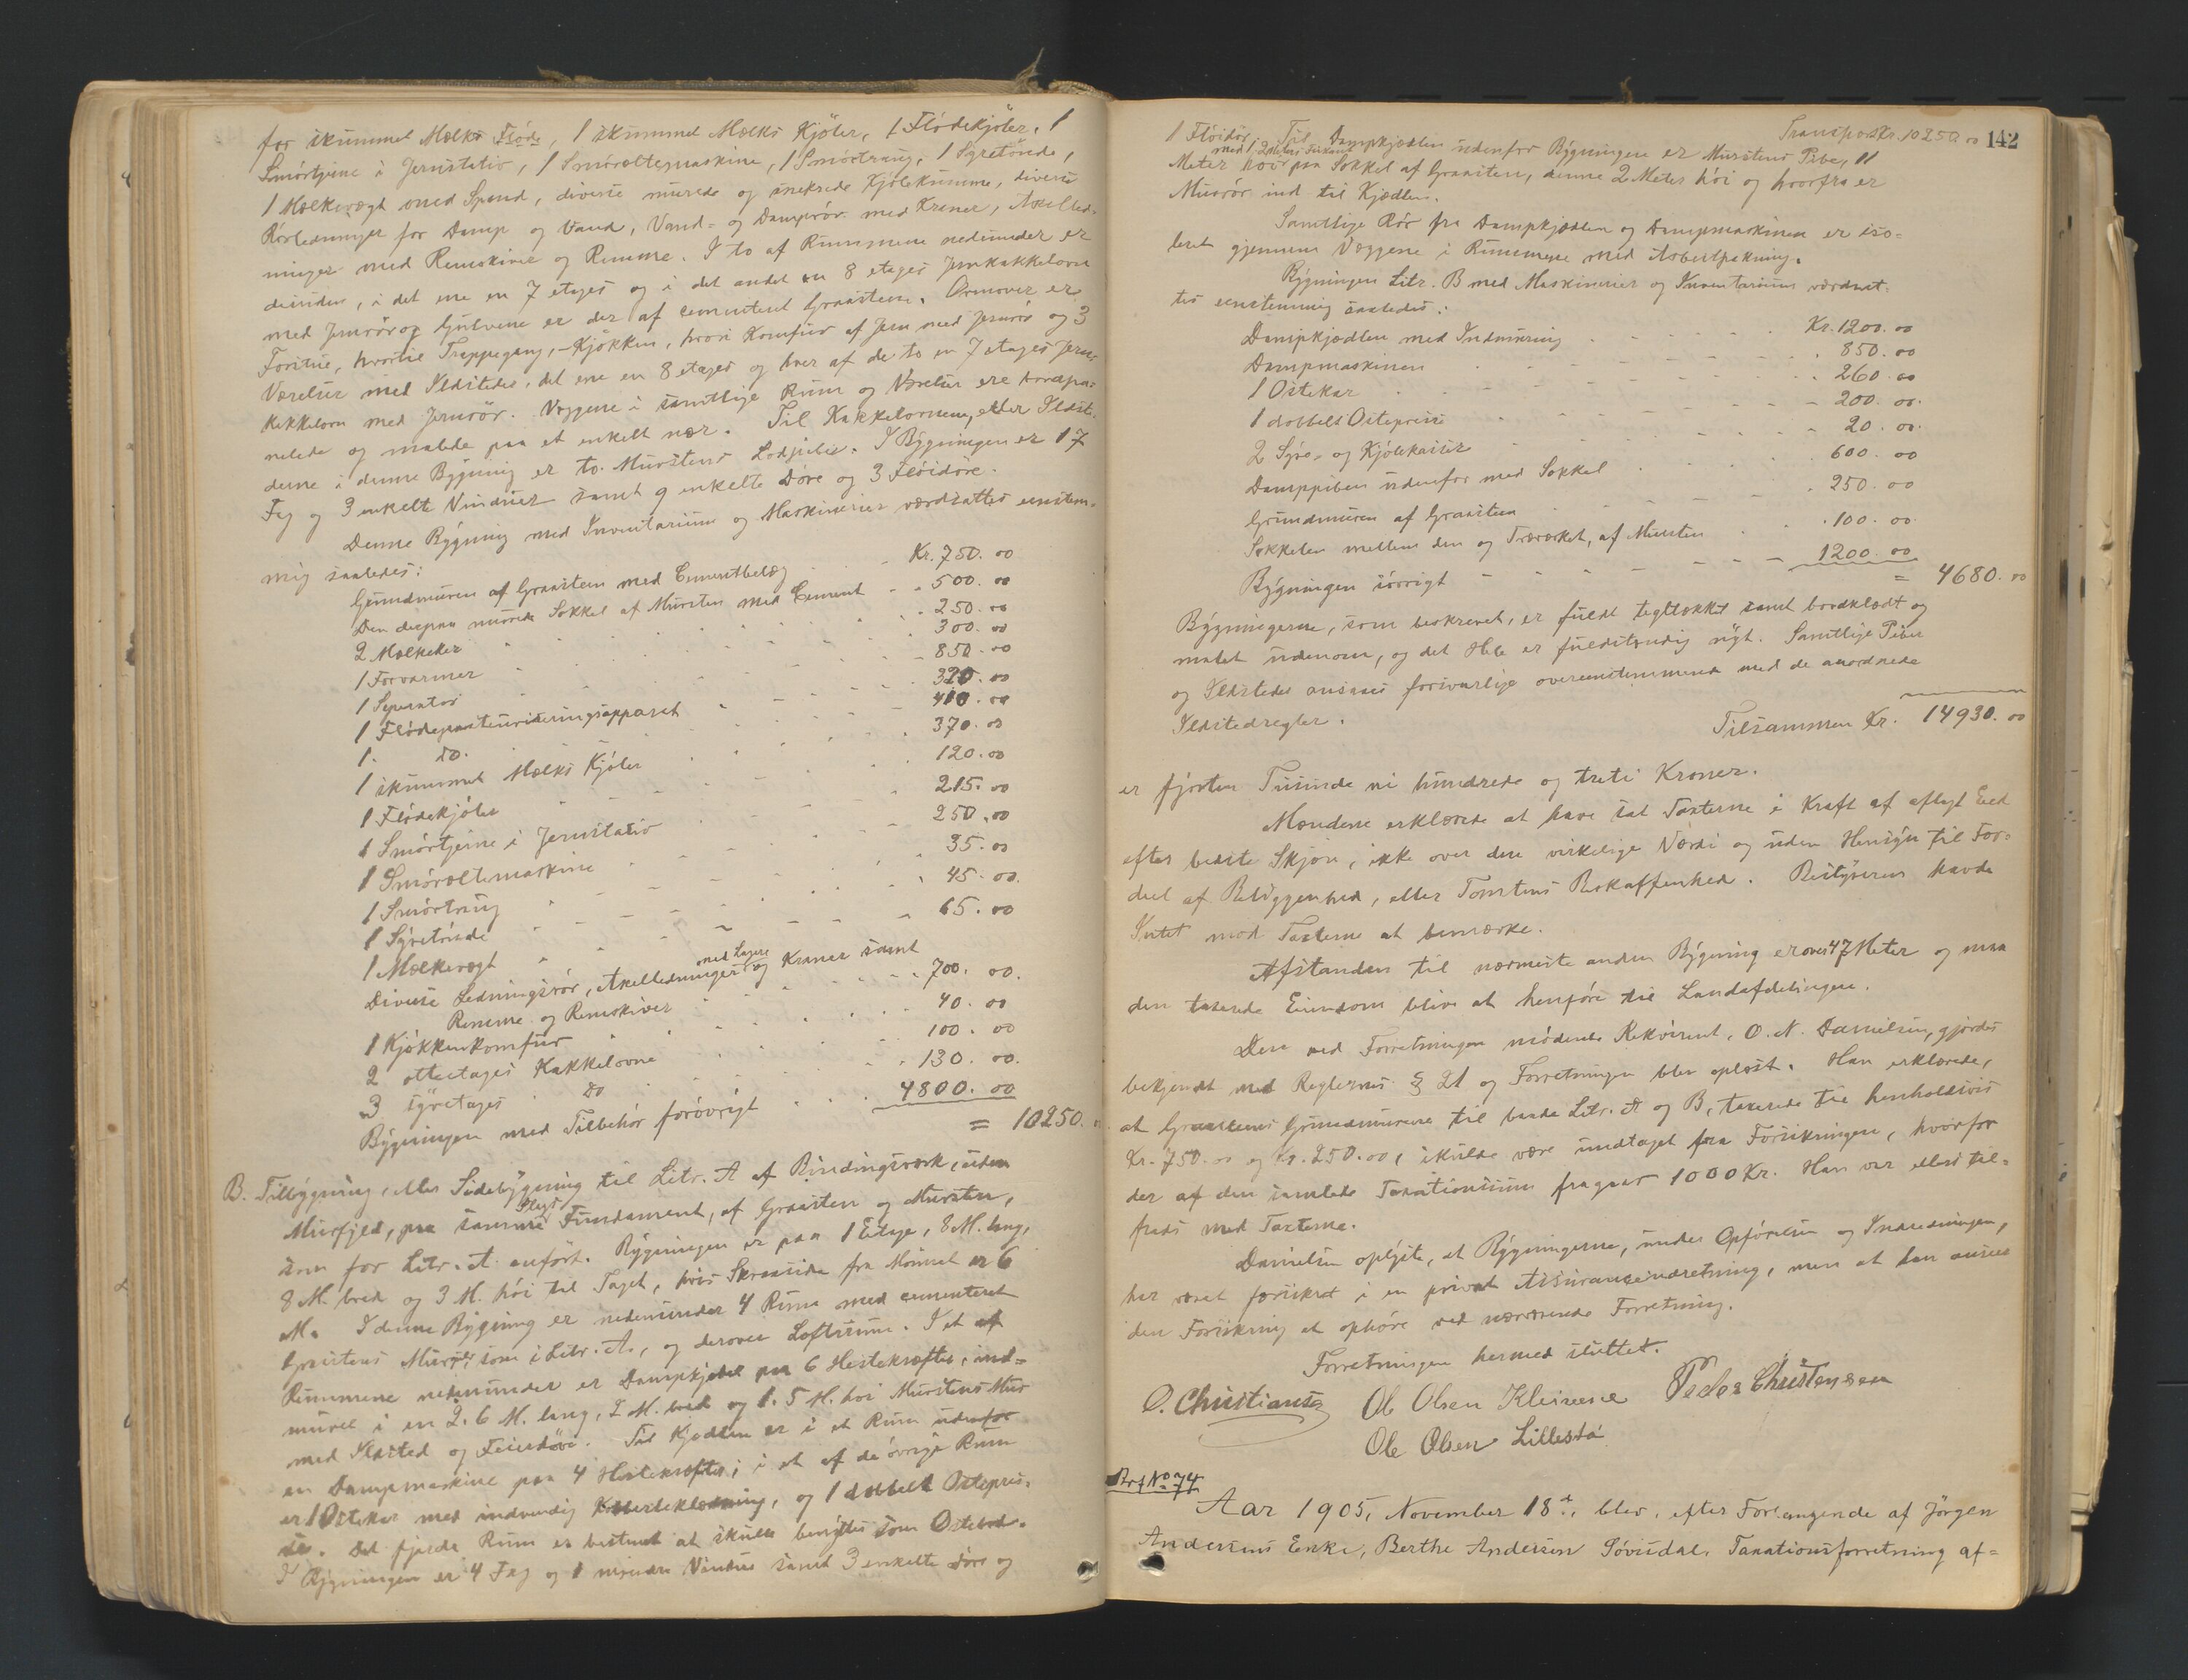 for skummet Mælks Fløde, 1 skummet Mælks Kjøler, 1 Flødekjøler, 1
Smørtjerne i Jernstativ, 1 Smøræltemaskine, 1 Smørtraug, 1 Syretønde,
1 Mælkevægt med Spand, diverse murede og snekrede Kjølekumme, diverse
Rørledninger for Damp og Vand, Vand- og Damprør med Kraner, Axelled-
ninger med Remskiver og Remme. I to af Rummene nedunder er
desuden, i det ene en 7 etages og i det andet en 8 etages Jernkakkelovn
med Jernrør og Gulvene er der af cementeret Graasten. Ovenover er
Forstue, hvortil Trappegang, Kjøkken, hvori Komfur af Jern med Jernrør og 3
Værelser med Ildsteder, det ene en 8 etages og hver af de to en 7 etages Jern-
kakkelovn med Jernrør. Væggene i samtlige Rum og Værelser ere bordpa-
nelede og malede paa et enkelt nær. Til Kakkelovnene, eller Ildste-
derne i denne Bygning er to Murstens Lodpiber. I Bygningen er 17
Fag og 3 enkelte Vinduer samt 9 enkelte Døre og 3 Fløidøre.
Denne Bygning med Inventarium og Maskinerier værdsattes enstem-
mig saaledes:
Grundmuren af Graasten med Cementbelæg Kr. 750. 00
Den derpaa murede Sokkel af Mursten med Cement 500. 00
2 Mælkekar 250. 00
1 Forvarmer 300. 00
1 Separator 850. 00
1 Flødepasteuriseringsapparat 320. 00
1. do. 410. 00
1 skummet Mælks Kjøler 370. 00
1 Flødekjøler 120. 00
1 Smørtjerne i Jernstativ 215. 00
1 Smøræltemaskine 250. 00
1 Smørtraug 35. 00
1 Syretønde 45. 00
1 Mælkevægt 65. 00
med Lagere
Diverse Ledningsrør, Axelledninger og Kraner samt
Remme og Remskiver 700. 00.
1 Kjøkkenkomfur 40. 00
2 otteetages Kakkelovne 100. 00
3 syvetages do 130. 00.
Bygningen med Tilbehør forøvrigt 4800. 00
= 10250.
B. Tilbygning, eller Sidebygning til Litr. A af Bindingsværk, uden
Slags
Murfjeld, paa samme Fundament, af Graasten og Mursten,
som for Litr. A. anført. Bygningen er paa 1 Etage, 8 M. lang,
8 M. bred og 3 M. høi til Taget, hvis Skraaside fra Mønnet er 6
M. I denne Bygning er nedenunder 4 Rum med cementeret
Graastens Mur som i Litr. A., og derover Loftsrum. I et af
Rummene nedenunder er Dampkjedel paa 6 Hestekræfter, ind-
muret i en 2.6 M. lang, 2 M. bred og 1.5 M. høi Murstens Mur
med Ildsted og Feiedøre. Til Kjedlen er i et Rum udenfor
en Dampmaskine paa 4 Hestekræfter; i et af de øvrige Rum
er 1 Ostekar med indvendig Kobberbeklædning, og 1 dobbelt Ostepres-
se. Det fjerde Rum er bestemt at skulle benyttes som Ostebod.
I Bygningen er 4 Fag og 1 mindre Vindue samt 3 enkelte Døre og
Transport Kr. 10250. 00 142
1 Fløidør. Til Dampkjedlen udenfor Bygningen er Murstens Pibe, 11
Meter høi paa Sokkel af Graasten, denne 2 Meter høi og hvorfra er
Murrør ind til Kjedlen.
Samtlige Rør fra Dampkjedlen og Dampmaskinen er iso-
leret gjennem Væggene i Rummene med Asbestpakning.
Bygningen Litr. B med Maskinerier og Inventarium værdsat-
tes enstemmig saaledes:
Dampkjedlen med Indmuring Kr. 1200. 00
Dampmaskinen 850. 00
1 Ostekar 260. 00
1 dobbelt Ostepresse 200. 00.
2 Syre- og Kjølekasser 20. 00.
Damppiben udenfor med Sokkel 600. 00
Grundmuren af Graasten 250. 00
Sokkelen mellem den og Træværket, af Mursten 100. 00
Bygningen iøvrigt 1200. 00
= 4680. 00
Bygningerne, som beskrevet, er fuldt tegltækket samt bordklædt og
malet udenom, og det Hele er fuldstændig nyt. Samtlige Piber
og Ildsteder ansaaes forsvarlige overensstemmende med de anordnede
Ildstedregler.
Tilsammen Kr. 14930. 00
er fjorten Tusinde ni hundrede og treti Kroner.
Mændene erklærede at have sat Taxterne i Kraft af aflagt Eed
efter bedste Skjøn, ikke over den virkelige Værdi og uden Hensyn til For-
deel af Beliggenhed, eller Tomtens Beskaffenhed. Bestyreren havde
Intet mod Taxterne at bemærke.
Afstanden til nærmeste anden Bygning er over 47 Meter og maa
den taxerede Eiendom blive at henføre til Landafdelingen.
Den ved Forretningen mødende Rekvirent, O. N. Danielsen, gjordes
bekjendt med Reglernes § 21 og Forretningen blev oplæst. Han erklærede,
at Graastens Grundmurene til baade Litr. A og B, taxerede til henholdsvis
Kr. 750. 00 og Kr. 250. 00, skulde være undtaget fra Forsikringen, hvorfor
der af den samlede Taxationssum fragaar 1000 Kr. Han var ellers til-
freds med Taxterne.
Danielsen oplyste, at Bygningerne, under Opførelsen og Indredningen,
har været forsikret i en privat Assuranceindretning, men at han anser
den Forsikring at ophøre ved nærværende Forretning.
Forretningen hermed sluttet.
O. Christiansen Ole Olsen Kleivene Peder Christensen
Ole Olsen Lillestø
Brf No 74
Aar 1905, November 18de, blev, efter Forlangende af Jørgen
Andersens Enke, Berthe Andersen Søvisdal, Taxationsforretning af-